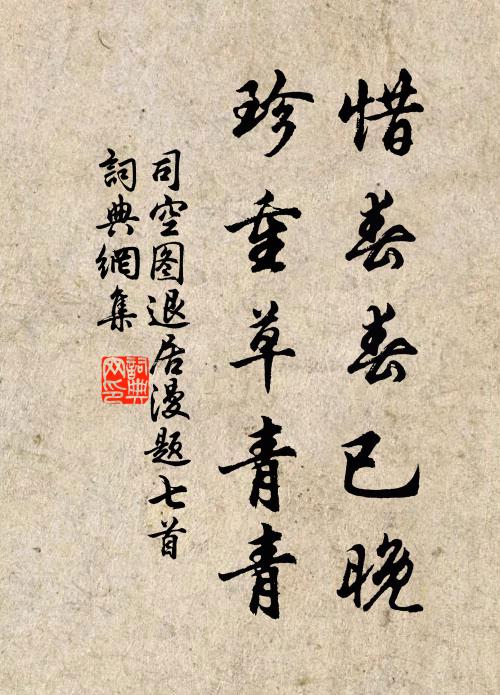 惜春春已晚
珍重草青青
司空图退居漫题七首
詞典網集
詞典
网印